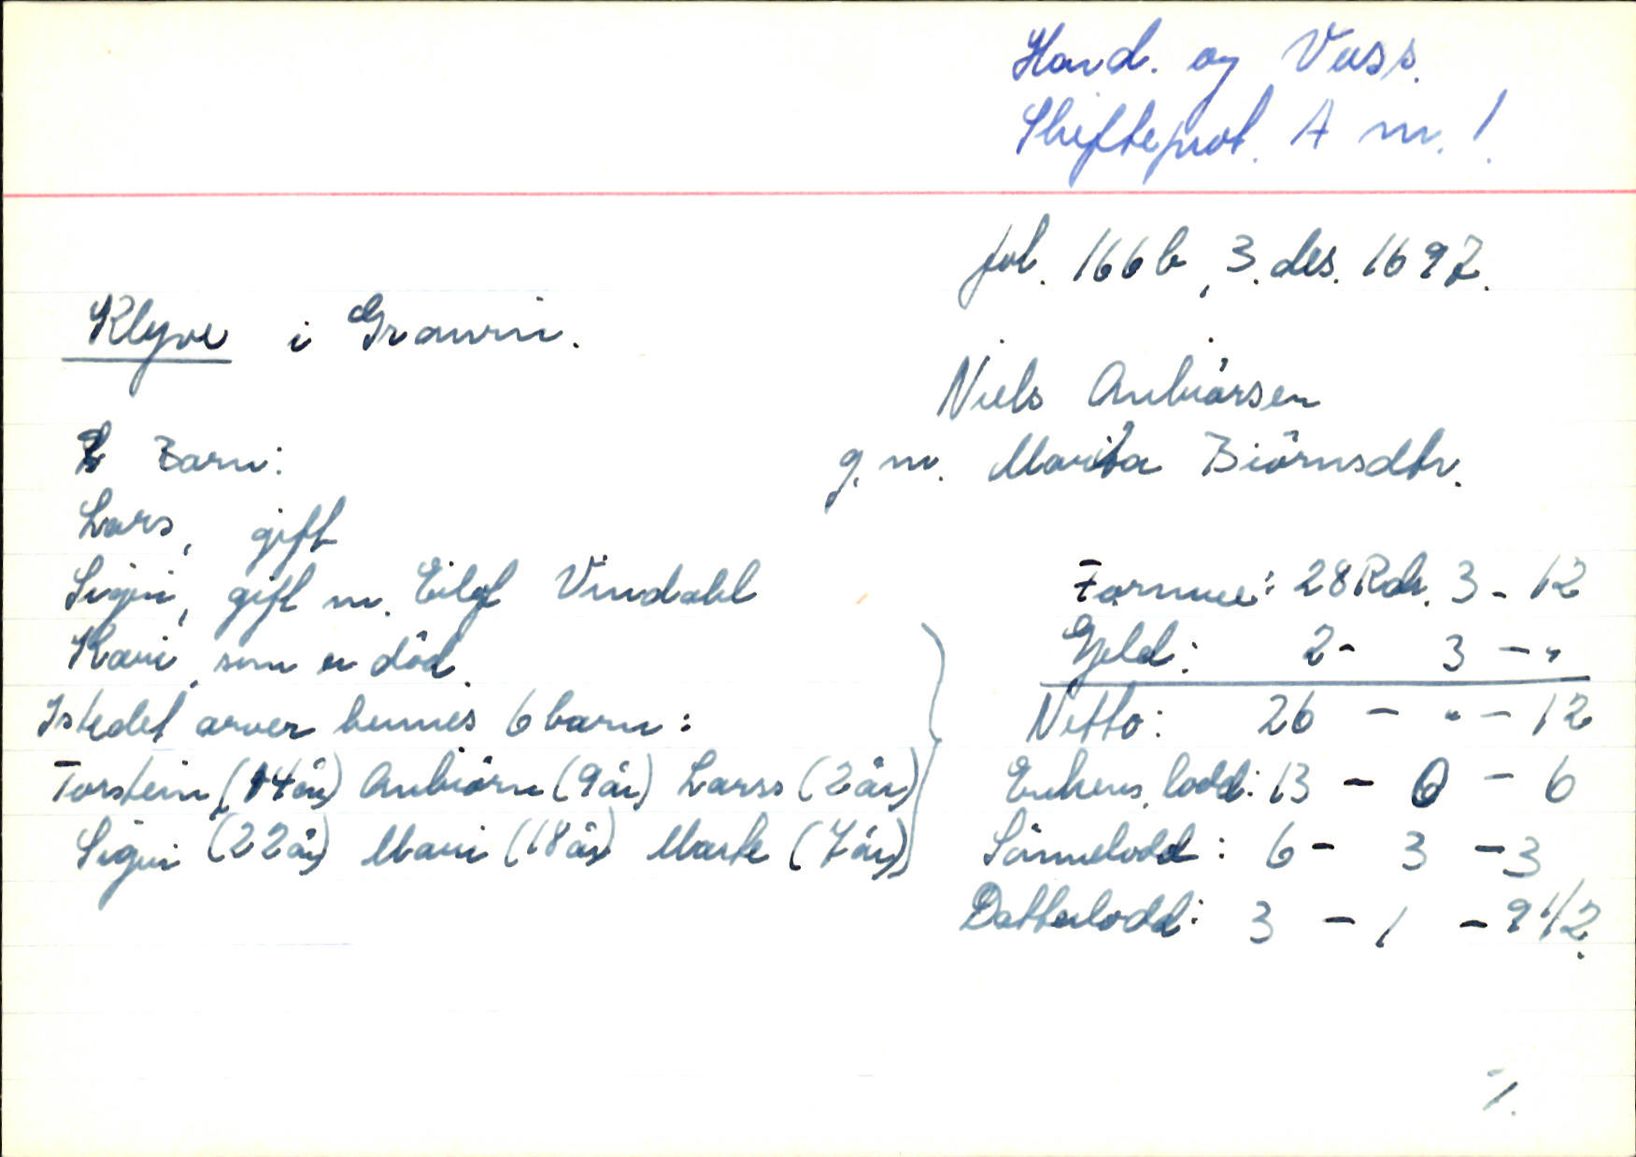 Hard. og Voss.
Skifteprot. A nr. 1.
fol. 166 b, 3. des. 1697.
Klyve i Grawin.
Niels Anbiörsen
g. m. Marita Biörnsdtr.
Barn:
Lars, gift
Sigri, gift m. Eilif Vindahl
Kari, som er död.
Istedet arver hennes 6 barn:
Torstein (14 år) Anbiörn (9 år) Larss (2 år)
Sigri (22 år) Mari (18 år) Marte (7 år)
Formue: 28 Rdr. 3 - 12
Gjeld: 2 - 3 - "
Netto: 26 - " - 12
Enkens lodd: 13 - 0 - 6
Sönnelodd: 6 - 3 - 3
Datterlodd: 3 - 1 - 9 1/2.